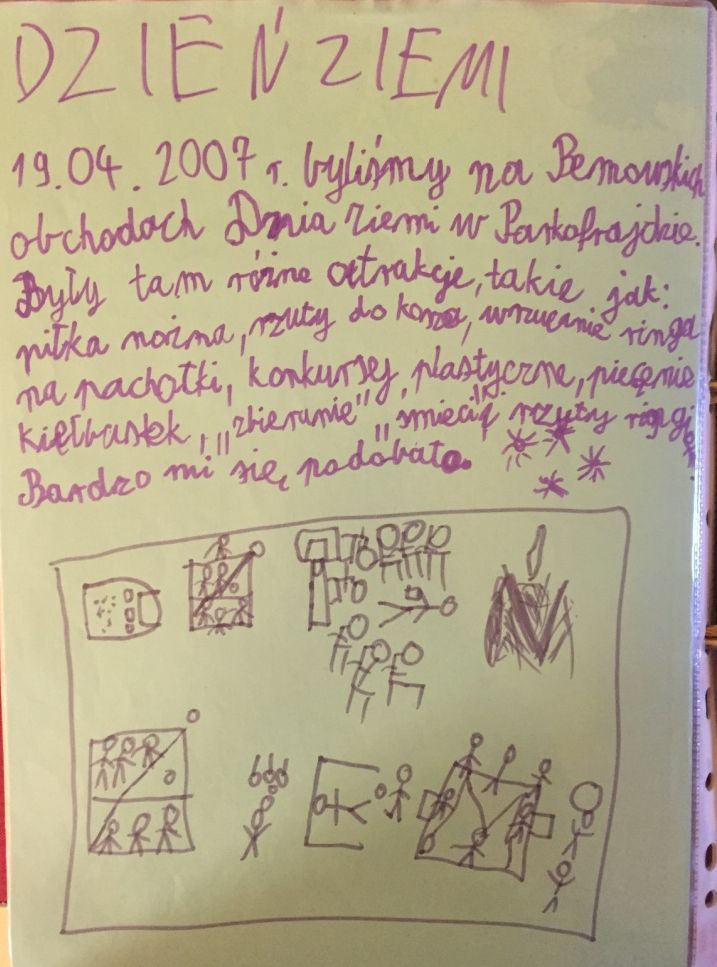 DZIEŃ ZIEMI
19.04.2007 r. byliśmy na Bemowskich
obchodach Dnia Ziemi w Parkofrajdzie.
Były tam różne atrakcje, takie jak:
piłka nożna, rzuty do kosza, wrzucanie ringa
na pachołki, konkursy, plastyczne, pieczenie
kiełbasek, "zbieranie" śmieci, rzuty
Bardzo mi się podobało.